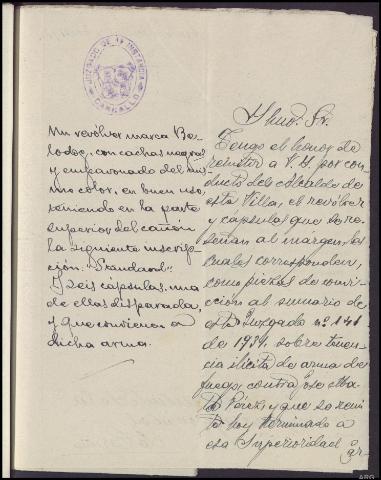 JUZGADO DE 1ª INSTANCIA
CARBALLO
Un revólver marca Bu-
ldog, con cachas negras
y empavonado del mis-
mo color, en buen uso,
teniendo en la parte
superior del cañón
la siguiente inscrip-
ción. "Standaoul"
Y seis cápsulas, una
de ellas disparada,
y que convienen a
dicha arma.
Yltmo. Sr.
Tengo el honor de
remitir a V.Y. por con-
ducto del Alcalde de
esta Villa, el revólver
y cápsulas que se re-
señan al márgen, los
cuales corresponden,
como piezas de convic-
ción al sumario de
este Juzgado nº 141
de 1934, sobre tenen-
cia ilícita de arma de
fuego, contra José
Pérez y que se remi-
te hoy terminado a
esa Superioridad
ARG